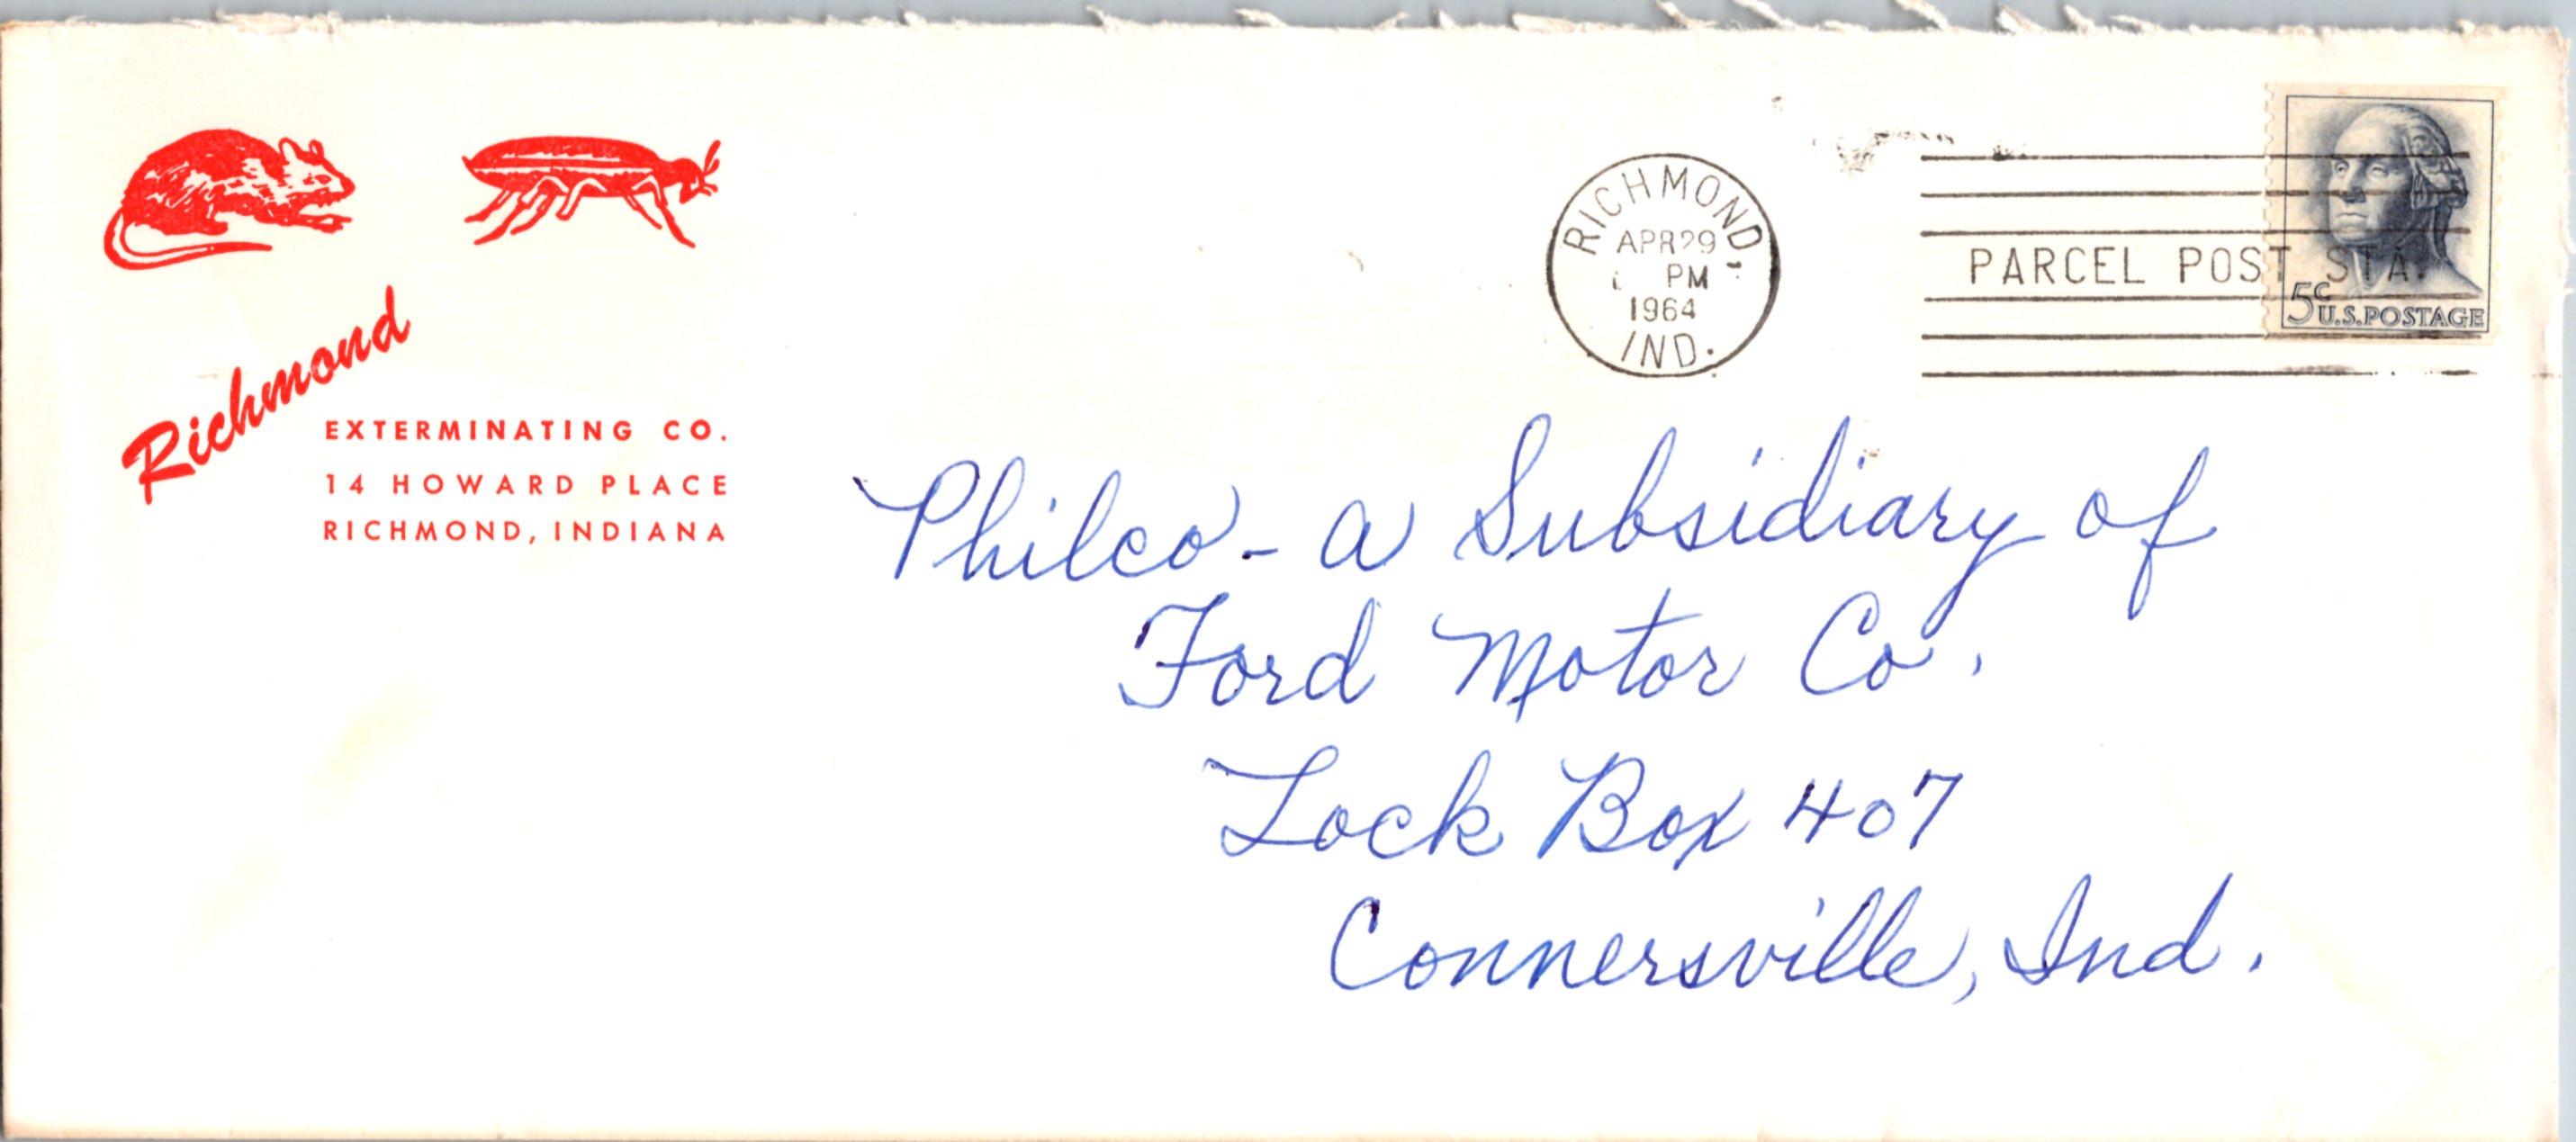 Richmond
EXTERMINATING CO.
14 HOWARD PLACE
RICHMOND, INDIANA
RICHMOND,
APR 29
PM
1964
IND.
PARCEL POST STA.
5c U.S. POSTAGE
Philco - a Subsidiary of
Ford Motor Co.
Lock Box 407
Connersville, Ind.